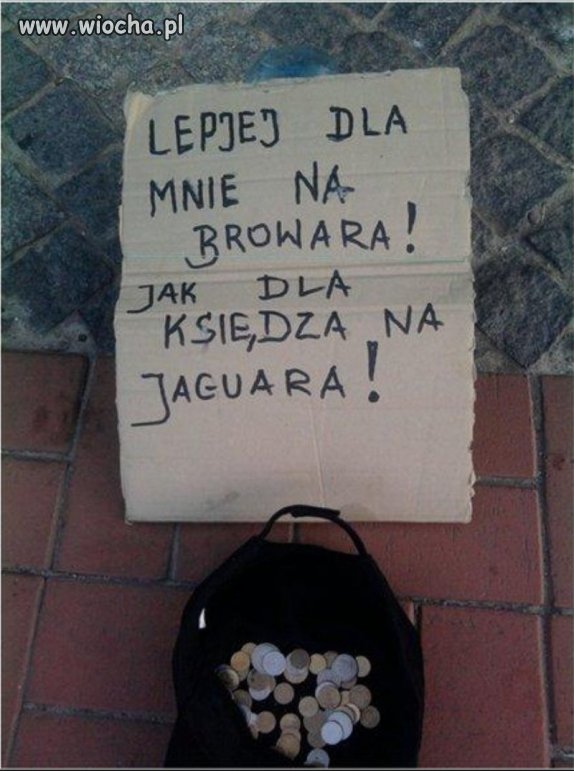 www.wiocha.pl
LEPJEJ DLA
MNIE NA
BROWARA!
JAK DLA
KSIĘDZA NA
JAGUARA!